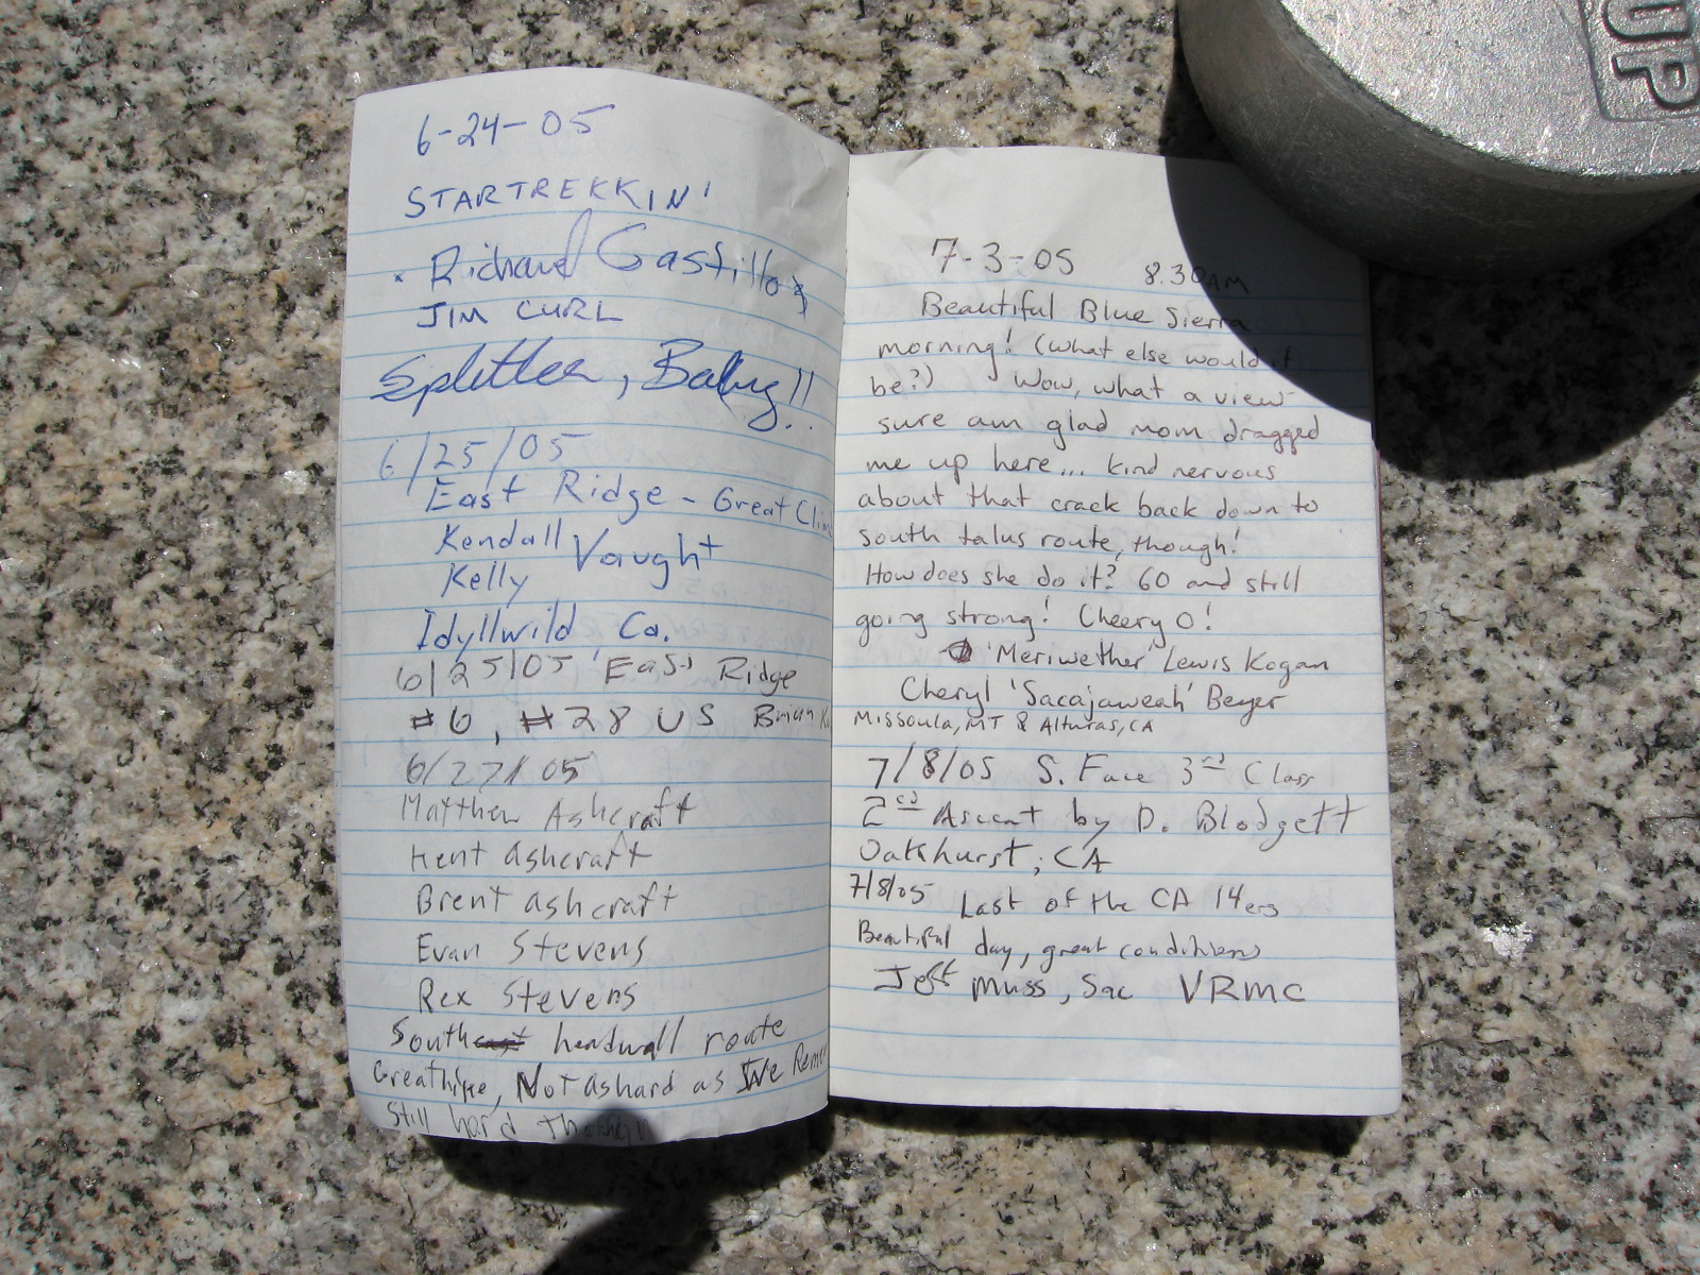 6-24-05
STARTREKKIN'
Richard Castillo &
JIM CURL
Splitter, Baby!!
6/25/05
East Ridge - Great Cli
Kendall Vaught
Kelly
Idyllwild, Ca.
6/25/05 East Ridge
#6, #28 US Brian
6/27/05
Matthew Ashcraft
Kent Ashcraft
Brent Ashcraft
Evan Stevens
Rex Stevens
South headwall route
Great hike, Not as hard as We Rem
Still hard though
7-3-05 8:30AM
Beautiful Blue Sierra
morning! (what else would it
be?) Wow, what a view
sure am glad mom dragged
me up here... kind nervous
about that crack back down to
south talus route, though!
How does she do it? 60 and still
going strong! Cheery O!
'Meriwether' Lewis Kogan
Cheryl 'Sacajaweah' Beyer
Missoula, MT & Alturas, CA
7/8/05 S. Face 3rd Class
2nd Ascent by D. Blodgett
Oakhurst, CA
7/8/05 Last of the CA 14ers
Beautiful day, great conditions
Jeff Muss, Sac VRMC
UP